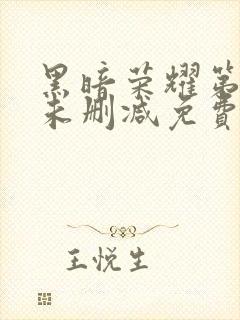 黑暗荣耀第
未删减免費
王悦生